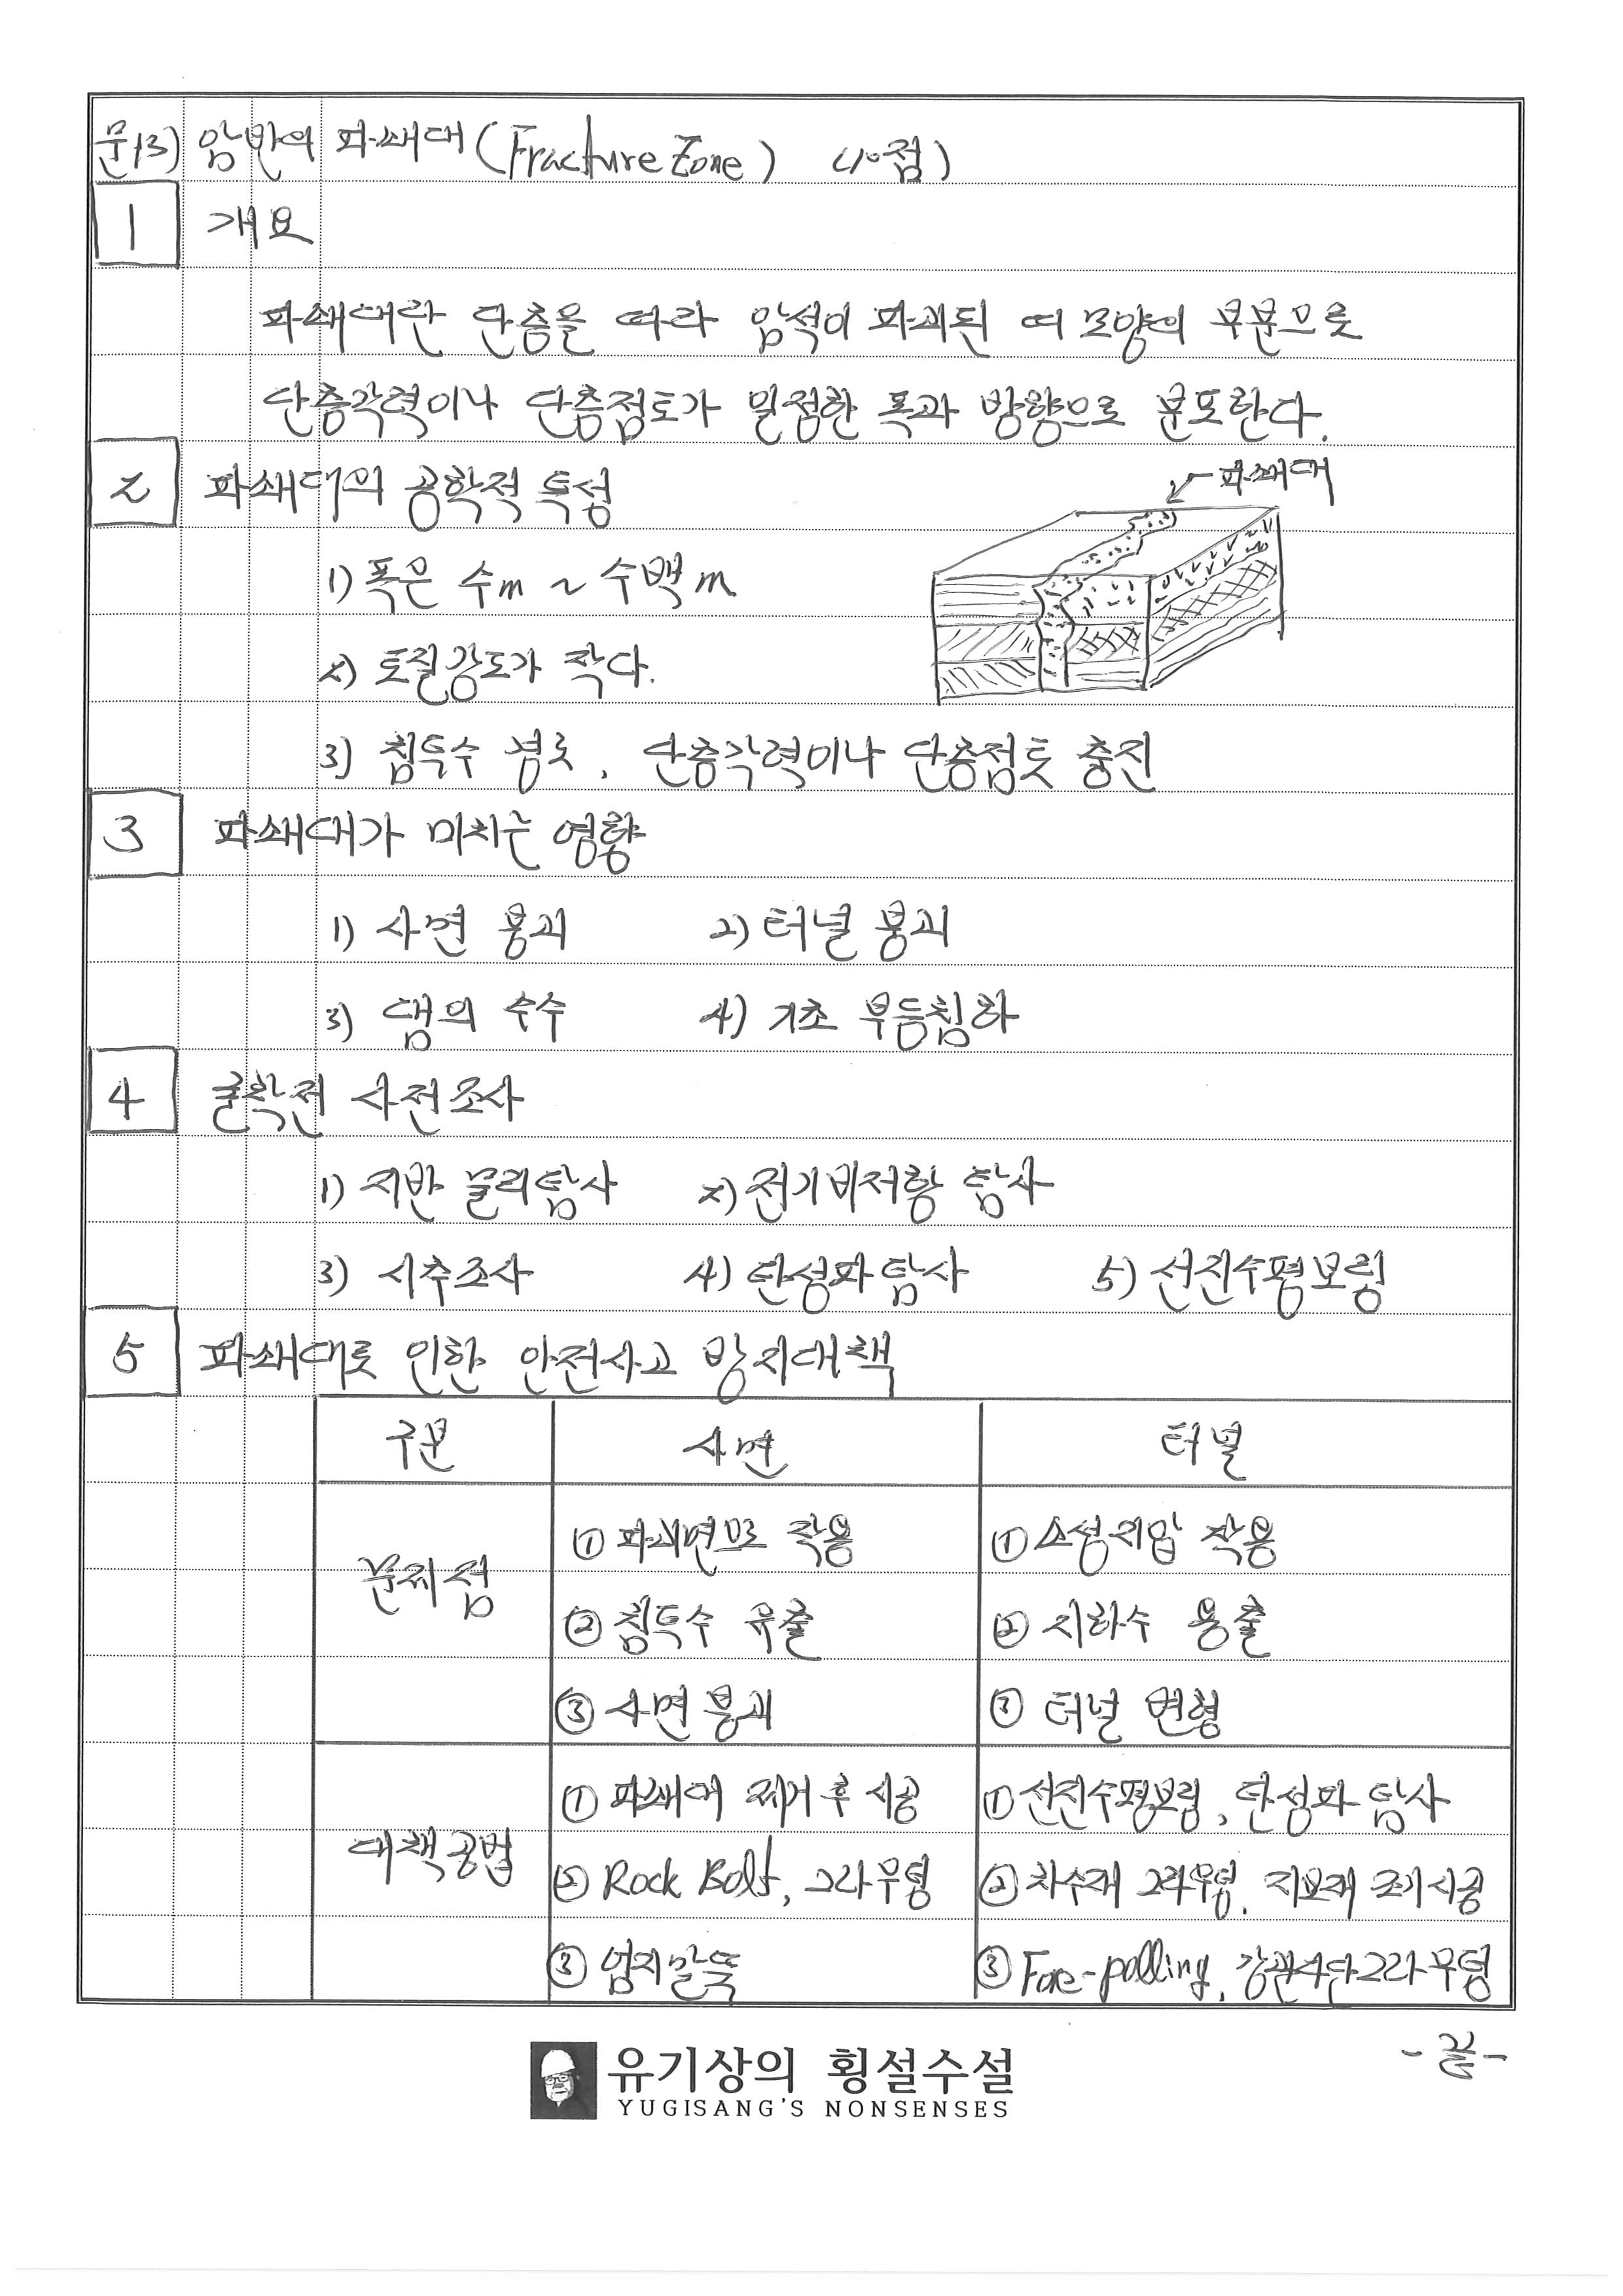 문13) 암반의 파쇄대 (Fracture Zone) (10점)
1 개요
파쇄대란 단층을 따라 암석이 파괴된 띠 모양의 부분으로
단층각력이나 단층점토가 일정한 폭과 방향으로 분포한다.
2 파쇄대의 공학적 특성
←파쇄대
1) 폭은 수m ~ 수백m
2) 토질강도가 작다.
3) 침투수 경로, 단층각력이나 단층점토 충진
3 파쇄대가 미치는 영향
1) 사면 붕괴 2) 터널 붕괴
3) 댐의 누수 4) 기초 부등침하
4 굴착전 사전조사
1) 지반 물리탐사 2) 전기비저항 탐사
3) 시추조사 4) 탄성파 탐사 5) 선진수평보링
5 파쇄대로 인한 안전사고 방지대책
구분 사면 터널
문제점
① 파괴면으로 작용 ① 소성지압 작용
② 침투수 유출 ② 지하수 용출
③ 사면붕괴 ③ 터널 변형
대책공법
① 파쇄대 제거 후 시공 ① 선진수평보링, 탄성파 탐사
② Rock Bolt, 그라우팅 ② 차수재 그라우팅, 지보재 조기시공
③ 엄지말뚝 ③ Fore-polling, 강관다단그라우팅
-끝-
유기상의 횡설수설
YUGISANG'S NONSENSES